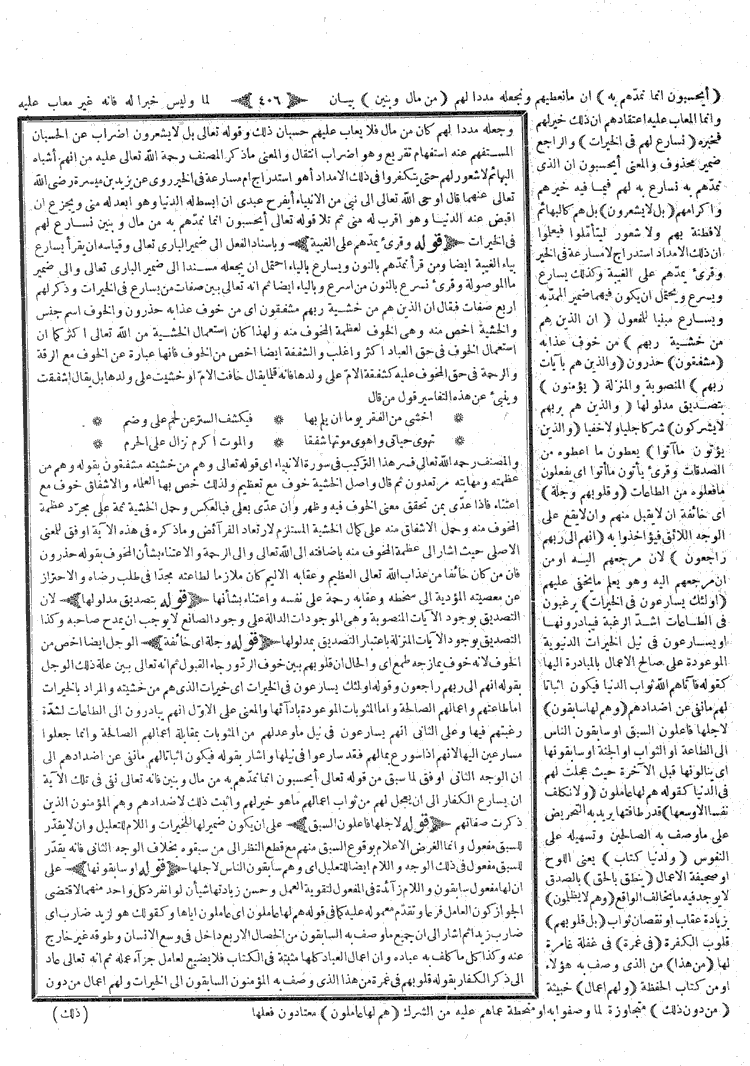 ﴿ أيحسبون انما نمدهم به ﴾ ان مانعطيهم ونجعله مددا لهم ﴿ من مال وبنين ﴾ بيان ﴿ ٤٠٦ ﴾ لما وليس خبرا له فانه غير معاب عليه
وانما المعاب عليه اعتقادهم ان ذلك خير لهم
فخبره ﴿ نسارع لهم فى الخيرات ﴾ والراجع
ضمير محذوف والمعنى أيحسبون ان الذى
نمدهم به نسارع به لهم فيما فيه خيرهم
واكرامهم ﴿ بل لايشعرون ﴾ بل هم كالبهائم
لا فطنة بهم ولا شعور ليتأملوا فيعلموا
ان ذلك الامداد استدراج لا مسارعة فى الخير
وقرئ يمدهم على الغيبة وكذلك يسارع
ويسرع ويحتمل ان يكون فيهما ضمير الممد به
ويسارع مبنيا للمفعول ﴿ ان الذين هم
من خشية ربهم ﴾ من خوف عذابه
﴿ مشفقون ﴾ حذرون ﴿ والذين هم بآيات
ربهم ﴾ المنصوبة والمنزلة ﴿ يؤمنون ﴾
بتصديق مدلولها ﴿ والذين هم بربهم
لا يشركون ﴾ شركا جليا ولا خفيا ﴿ والذين
يؤتون ماآتوا ﴾ يعطون ما اعطوه من
الصدقات وقرئ يأتون ماأتوا اى يفعلون
مافعلوه من الطاعات ﴿ وقلوبهم وجلة ﴾
اى خائفة ان لايقبل منهم وان لايقع على
الوجه اللائق فيؤاخذوا به ﴿ انهم الى ربهم
راجعون ﴾ لان مرجعهم اليه او من
ان مرجعهم اليه وهو يعلم مايخفى عليهم
﴿ اولئك يسارعون فى الخيرات ﴾ يرغبون
فى الطاعات اشد الرغبة فيبادرونها
او يسارعون فى نيل الخيرات الدنيوية
الموعودة على صالح الاعمال بالمبادرة اليها
كقوله فآتاهم الله ثواب الدنيا فيكون اثباتا
لهم مانفى عن اضدادهم ﴿ وهم لها سابقون ﴾
لاجلها فاعلون السبق او سابقون الناس
الى الطاعة او الثواب او الجنة او سابقونها
اى ينالونها قبل الآخرة حيث عجلت لهم
فى الدنيا كقوله هم لها عاملون ﴿ ولا نكلف
نفسا الاوسعها ﴾ قدر طاقتها يريد به التحريض
على ماوصف به الصالحين وتسهيله على
النفوس ﴿ ولدينا كتاب ﴾ يعنى اللوح
او صحيفة الاعمال ﴿ ينطق بالحق ﴾ بالصدق
لا يوجد فيه مايخالف الواقع ﴿ وهم لايظلمون ﴾
بزيادة عقاب او نقصان ثواب ﴿ بل قلوبهم ﴾
قلوب الكفرة ﴿ فى غمرة ﴾ فى غفلة غامرة
لها ﴿ من هذا ﴾ من الذى وصف به هؤلاء
او من كتاب الحفظة ﴿ ولهم اعمال ﴾ خبيثة
﴿ من دون ذلك ﴾ متجاوزة لما وصفوا به او منحطة عماهم عليه من الشرك ﴿ هم لها عاملون ﴾ معتادون فعلها
وجعله مددا لهم كان من مال فلا يعاب عليهم حسبان ذلك وقوله تعالى بل لايشعرون اضراب عن الحسبان
المستفهم عنه استفهام تقريع وهو اضراب انتقال والمعنى ماذكر المصنف رحمة الله تعالى عليه من انهم أشباه
البهائم لاشعور لهم حتى يتفكروا فى ذلك الامداد أهو استدراج ام مسارعة فى الخير روى عن يزيد بن ميسرة رضى الله
تعالى عنهما قال اوحى الله تعالى الى نبى من الانبياء أيفرح عبدى ان ابسط له الدنيا وهو ابعد له منى ويجزع ان
اقبض عنه الدنيا وهو اقرب له منى ثم تلا قوله تعالى أيحسبون انما نمدهم به من مال وبنين نسارع لهم
فى الخيرات ﴿ قوله وقرئ يمدهم على الغيبة ﴾ وباسناد الفعل الى ضمير البارى تعالى وقياسه ان يقرأ يسارع
بياء الغيبة ايضا ومن قرأ نمدهم بالنون ويسارع بالياء احتمل ان يجعله مسندا الى ضمير البارى تعالى والى ضمير
ما الموصولة وقرئ نسرع بالنون من اسرع وبالياء ايضا ثم انه تعالى بين صفات من يسارع فى الخيرات وذكر لهم
اربع صفات فقال ان الذين هم من خشية ربهم مشفقون اى من خوف عذابه حذرون والخوف اسم جنس
والخشية اخص منه وهى الخوف لعظمة المخوف منه ولهذا كان استعمال الخشية من الله تعالى اكثر كما ان
استعمال الخوف فى حق العباد اكثر واغلب والشفقة ايضا اخص من الخوف فانها عبارة عن الخوف مع الرقة
والرحمة فى حق المخوف عليه كشفقة الام على ولدها فانه قلما يقال خافت الام او خشيت على ولدها بل يقال اشفقت
وينبئ عن هذه التفاسير قول من قال
❊ اخشى من الفقر يوما ان يلم بها ❊ فيكشف الستر عن لحم على وضم ❊
❊ تهوى حياتى واهوى موتها شفقا ❊ والموت أكرم نزال على الحرم ❊
والمصنف رحمه الله تعالى فسر هذا التركيب فى سورة الانبياء اى قوله تعالى وهم من خشيته مشفقون بقوله وهم من
عظمته ومهابته مرتعدون ثم قال واصل الخشية خوف مع تعظيم ولذلك خص بها العلماء والاشفاق خوف مع
اعتناء فاذا عدى بمن تحقق معنى الخوف فيه وظهر وان عدى بعلى فبالعكس وحمل الخشية ثمة على مجرد عظمة
المخوف منه وحمل الاشفاق منه على كمال الخشية المستلزم لارتعاد الفرائض وماذكره فى هذه الآية اوفق لمعنى
الاصلى حيث اشار الى عظمة المخوف منه باضافته الى الله تعالى والى الرحمة والاعتناء بشأن المخوف بقوله حذرون
فان من كان خائفا من عذاب الله تعالى العظيم وعقابه الاليم كان ملازما لطاعته مجدا فى طلب رضاه والاحتراز
عن معصيته المؤدية الى سخطه وعقابه رحمة على نفسه واعتناء بشأنها ﴿ قوله بتصديق مدلولها ﴾ لان
التصديق بوجود الآيات المنصوبة وهى الموجودات الدالة على وجود الصانع لا يوجب ان يمدح صاحبه وكذا
التصديق بوجود الآيات المنزلة باعتبار التصديق بمدلولها ﴿ قوله وجلة اى خائفة ﴾ الوجل ايضا اخص من
الخوف لانه خوف يمازجه طمع اى والحال ان قلوبهم بين خوف الرد ورجاء القبول ثم انه تعالى بين علة ذلك الوجل
بقوله انهم الى ربهم راجعون وقوله اولئك يسارعون فى الخيرات اى خيرات الذى هم من خشيته والمراد بالخيرات
اما طاعتهم واعمالهم الصالحة واما المثوبات الموعودة بادآئها والمعنى على الاول انهم يبادرون الى الطاعات لشدة
رغبتهم فيها وعلى الثانى انهم يسارعون فى نيل ماوعدلهم من المثوبات بمقابلة اعمالهم الصالحة وانما جعلوا
مسارعين اليها لانهم اذا سورع بها لهم فقد سارعوا فى نيلها واشار بقوله فيكون اثباتا لهم مانفى عن اضدادهم الى
ان الوجه الثانى اوفق لما سبق من قوله تعالى أيحسبون انما نمدهم به من مال وبنين فانه تعالى نفى فى تلك الآية
ان يسارع الكفار الى ان يعجل لهم من ثواب اعمالهم ماهو خير لهم واثبت ذلك لاضدادهم وهم المؤمنون الذين
ذكرت صفاتهم ﴿ قوله لاجلها فاعلون السبق ﴾ على ان يكون ضمير لها للخيرات واللام للتعليل وان لا يقدر
للسبق مفعول وانما الغرض الاعلام بوقوع السبق منهم مع قطع النظر الى من سبقوه بخلاف الوجه الثانى فانه يقدر
للسبق مفعول فى ذلك الوجه واللام ايضا للتعليل اى وهم سابقون الناس لاجلها ﴿ قوله او سابقونها ﴾ على
ان لها مفعول سابقون واللام زآئدة فى المفعول لتقوية العمل وحسن زيادتها شيأن لو انفرد كل واحد منهما لاقتضى
الجواز كون العامل فرعا وتقدم معموله عليه كما فى قوله هم لها عاملون اى عاملون اياها وكقولك هو لزيد ضارب اى
ضارب زيدا ثم اشار الى ان جميع ماوصف به السابقون من الخصال الاربع داخل فى وسع الانسان وطوقه غير خارج
عنه وكذا كل ما كلف به عباده وان اعمال العباد كلها مثبتة فى الكتاب فلا يضيع لعامل جزآء عمله ثم انه تعالى عاد
الى ذكر الكفار بقوله قلوبهم فى غمرة من هذا الذى وصف به المؤمنون السابقون الى الخيرات ولهم اعمال من دون
( ذلك )